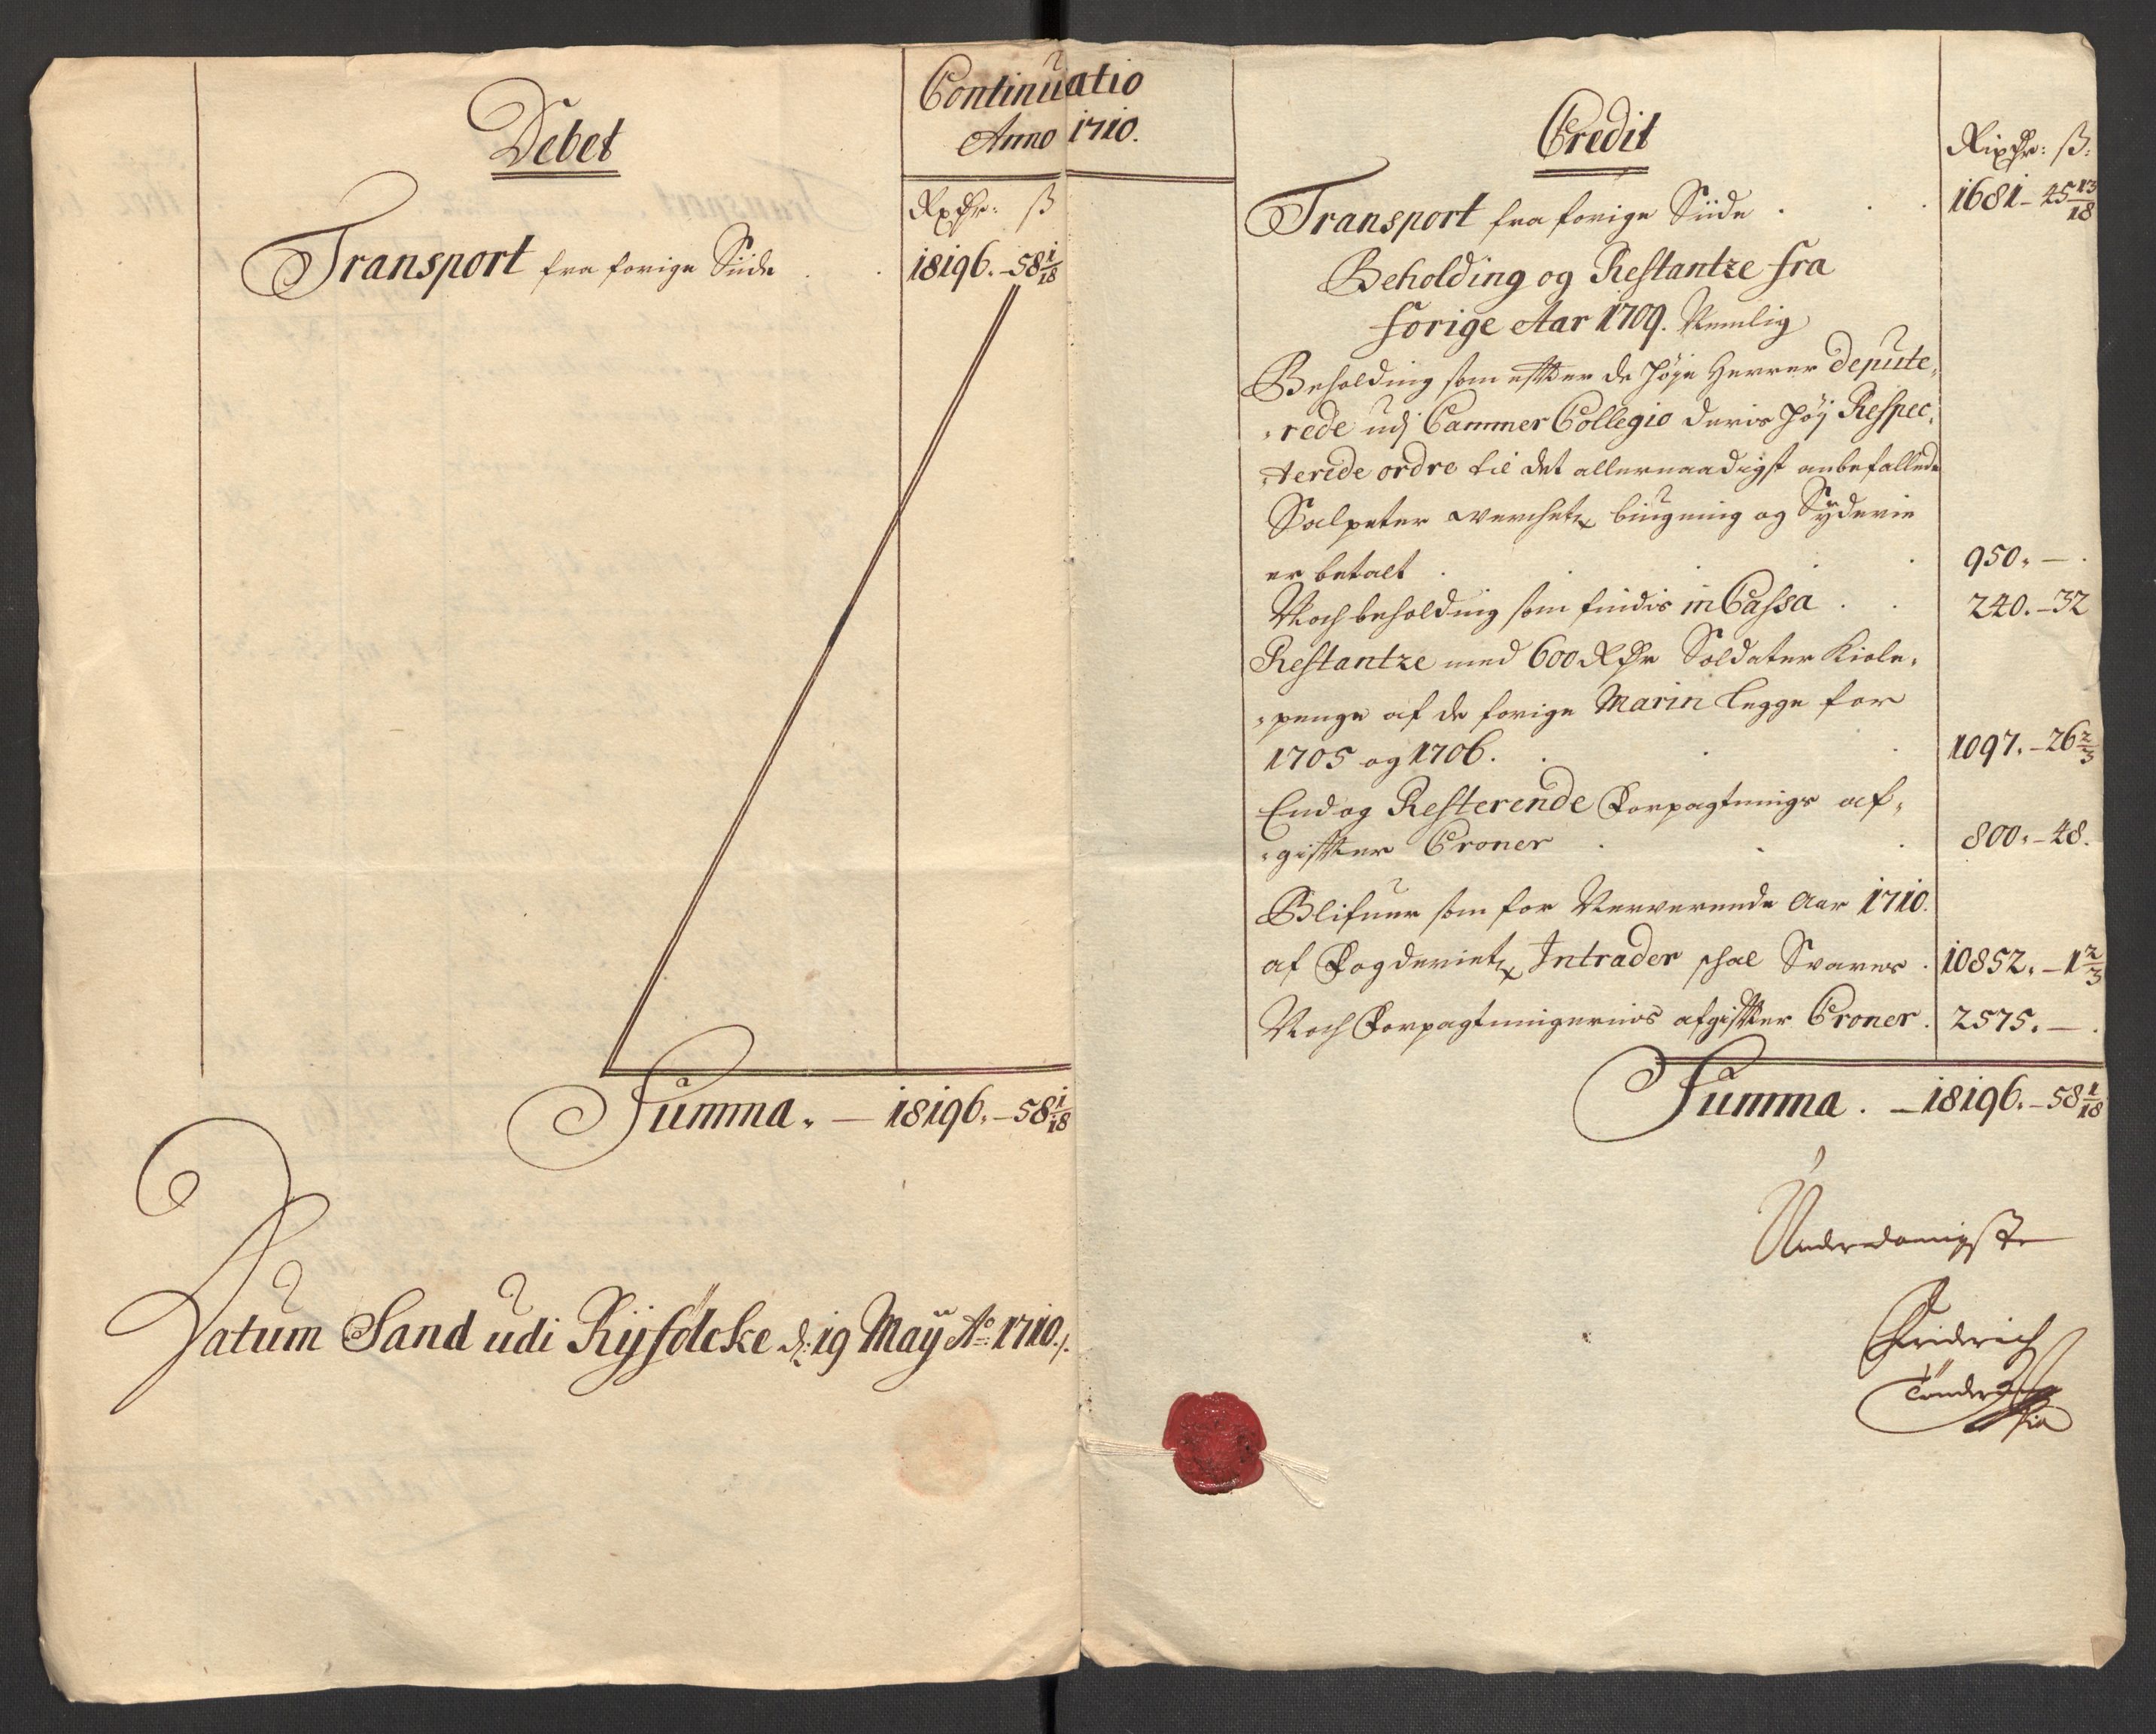 Debet
Continuatio
Anno 1710.
Rxdr: ß
Transport fra forige Siide . . 18196.-58 1/18
Summa. — 18196.-58 1/18
Datum Sand udi Ryfölcke d: 19 Maÿ Ao: 1710./.
Credit
Rixdr: ß:
Transport fra forige Siide . . . 1681-45 13/18
Beholding og Restantze fra
forige Aar 1709. Nemlig
Beholding som effter de høje Herrer Depute,
,rede udj Cammer Collegio deris høj Respec,
,terede ordre til det allernaadigst anbefallede
Salpeter werchetz biugning og Syderie
er betalt . . . . 950.—.
Noch beholding som findis in Cassa . . 240.-32
Restantze med 600 Rdr Soldater Kiole,
,penge af de forige Marin Legge for
1705 og 1706. . . . 1097.-26 2/3
End og Resterende Forpagtnings af,
,giffter Croner . . . 800.-48.
Blifuer som for Nerverende Aar 1710.
af Fogderietz Intrader schal Svares . 10852.-1 2/3
Noch Forpagtningernis afgiffter Croner . 2575.—.
Summa. — 18196.-58 1/18
Underdanigste
Fridrich
Tönder